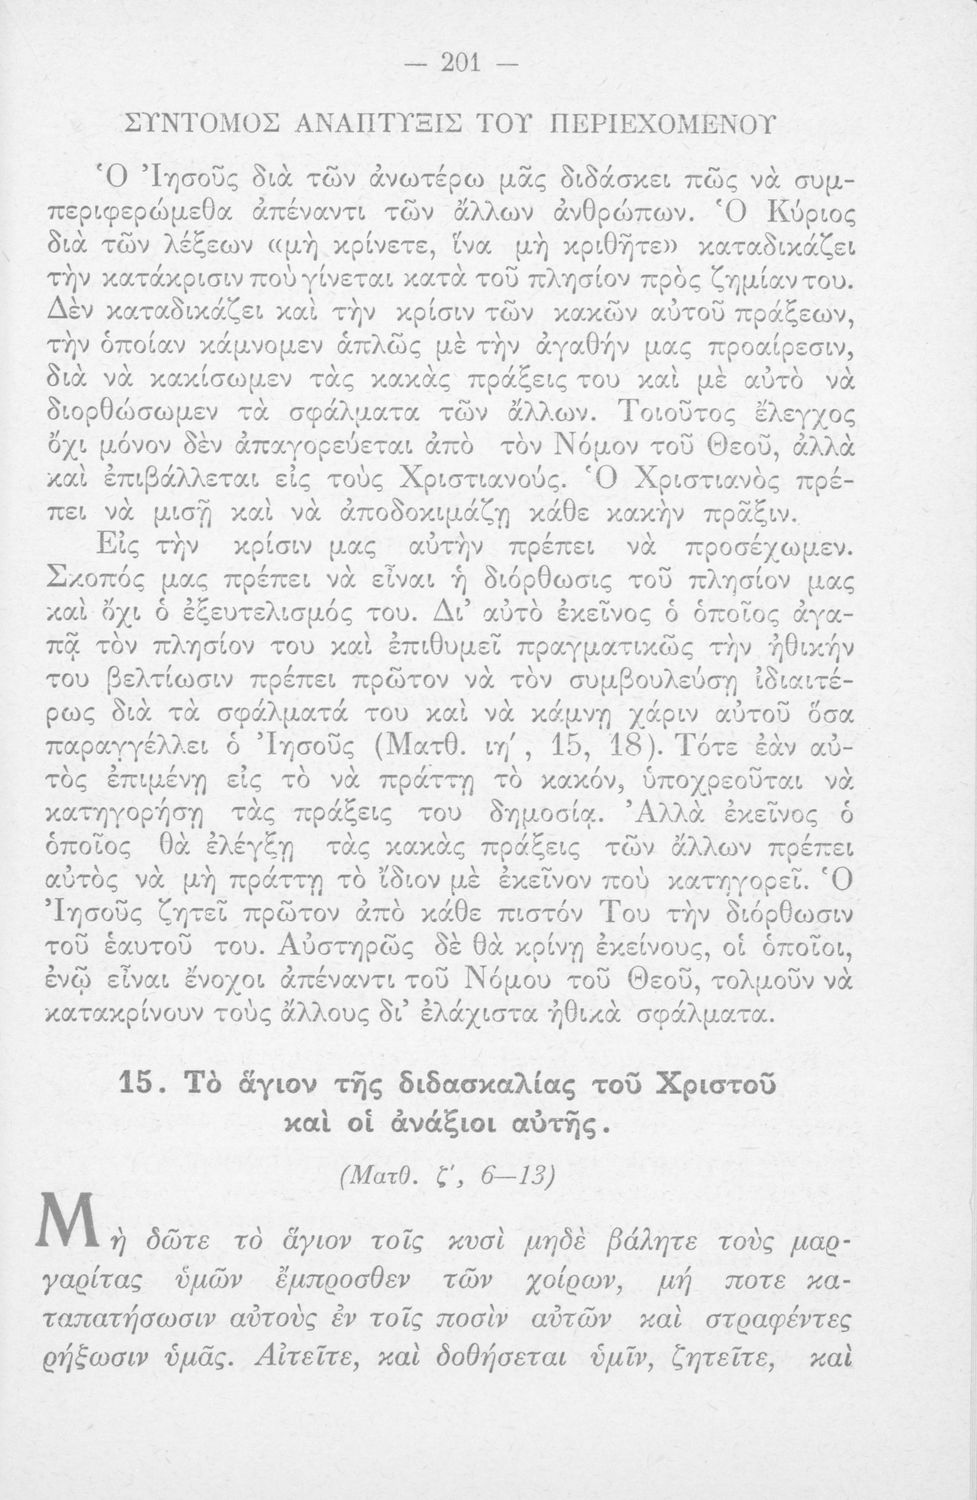 — 201 —
ΣΥΝΤΟΜΟΣ ΑΝΑΠΤΥΞΙΣ ΤΟΥ ΠΕΡΙΕΧΟΜΕΝΟΥ
Ὁ Ἰησοῦς διὰ τῶν ἀνωτέρω μᾶς διδάσκει πῶς νὰ συμ-
περιφερώμεθα ἀπέναντι τῶν ἄλλων ἀνθρώπων. Ὁ Κύριος
διὰ τῶν λέξεων «μὴ κρίνετε, ἵνα μὴ κριθῆτε» καταδικάζει
τὴν κατάκρισιν ποὺ γίνεται κατὰ τοῦ πλησίον πρὸς ζημίαν του.
Δὲν καταδικάζει καὶ τὴν κρίσιν τῶν κακῶν αὐτοῦ πράξεων,
τὴν ὁποίαν κάμνομεν ἁπλῶς μὲ τὴν ἀγαθήν μας προαίρεσιν,
διὰ νὰ κακίσωμεν τὰς κακὰς πράξεις του καὶ μὲ αὐτὸ νὰ
διορθώσωμεν τὰ σφάλματα τῶν ἄλλων. Τοιοῦτος ἔλεγχος
ὄχι μόνον δὲν ἀπαγορεύεται ἀπὸ τὸν Νόμον τοῦ Θεοῦ, ἀλλὰ
καὶ ἐπιβάλλεται εἰς τοὺς Χριστιανούς. Ὁ Χριστιανὸς πρέ-
πει νὰ μισῇ καὶ νὰ ἀποδοκιμάζῃ κάθε κακὴν πρᾶξιν.
Εἰς τὴν κρίσιν μας αὐτὴν πρέπει νὰ προσέχωμεν.
Σκοπός μας πρέπει νὰ εἶναι ἡ διόρθωσις τοῦ πλησίον μας
καὶ ὄχι ὁ ἐξευτελισμός του. Δι’ αὐτὸ ἐκεῖνος ὁ ὁποῖος ἀγα-
πᾷ τὸν πλησίον του καὶ ἐπιθυμεῖ πραγματικῶς τὴν ἠθικήν
του βελτίωσιν πρέπει πρῶτον νὰ τὸν συμβουλεύσῃ ἰδιαιτέ-
ρως διὰ τὰ σφάλματά του καὶ νὰ κάμνῃ χάριν αὐτοῦ ὅσα
παραγγέλλει ὁ Ἰησοῦς (Ματθ. ιη', 15, 18). Τότε ἐὰν αὐ-
τὸς ἐπιμένῃ εἰς τὸ νὰ πράττῃ τὸ κακόν, ὑποχρεοῦται νὰ
κατηγορήσῃ τὰς πράξεις του δημοσίᾳ. Ἀλλὰ ἐκεῖνος ὁ
ὁποῖος θὰ ἐλέγξῃ τὰς κακὰς πράξεις τῶν ἄλλων πρέπει
αὐτὸς νὰ μὴ πράττῃ τὸ ἴδιον μὲ ἐκεῖνον ποὺ κατηγορεῖ. Ὁ
Ἰησοῦς ζητεῖ πρῶτον ἀπὸ κάθε πιστόν Του τὴν διόρθωσιν
τοῦ ἑαυτοῦ του. Αὐστηρῶς δὲ θὰ κρίνῃ ἐκείνους, οἱ ὁποῖοι,
ἐνῷ εἶναι ἔνοχοι ἀπέναντι τοῦ Νόμου τοῦ Θεοῦ, τολμοῦν νὰ
κατακρίνουν τοὺς ἄλλους δι’ ἐλάχιστα ἠθικὰ σφάλματα.
15. Τὸ ἅγιον τῆς διδασκαλίας τοῦ Χριστοῦ
καὶ οἱ ἀνάξιοι αὐτῆς.
(Ματθ. ζ', 6—13)
Μὴ δῶτε τὸ ἅγιον τοῖς κυσὶ μηδὲ βάλητε τοὺς μαρ-
γαρίτας ὑμῶν ἔμπροσθεν τῶν χοίρων, μή ποτε κα-
ταπατήσωσιν αὐτοὺς ἐν τοῖς ποσὶν αὐτῶν καὶ στραφέντες
ρήξωσιν ὑμᾶς. Αἰτεῖτε, καὶ δοθήσεται ὑμῖν, ζητεῖτε, καὶ